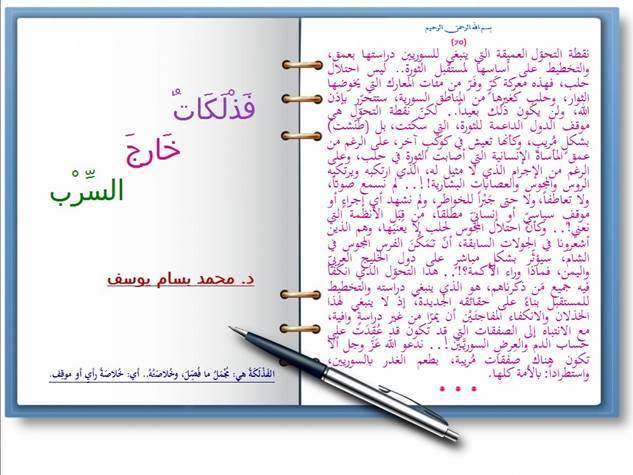 بسم الله الرحمن الرحيم
(70)
نقطة التحوّل العميقة التي ينبغي للسوريين دراستها بعمق،
والتخطيط على أساسها لمستقبل الثورة.. ليس احتلال
حلب، فهذه معركة كرّ وفرّ من مئات المعارك التي يخوضها
الثوار، وحلب كغيرها من المناطق السورية، ستتحرّر بإذن
الله، ولن يكون ذلك بعيداً.. لكنّ نقطة التحوّل هي
موقف الدول الداعمة للثورة، التي سكتت، بل (طَنّشَت)
بشكلٍ مُريب، وكأنها تعيش في كوكب آخر، على الرغم من
عمق المأساة الإنسانية التي أصابت الثورة في حلب، وعلى
الرغم من الإجرام الذي لا مثيل له، الذي ارتكبه ويرتكبه
الروس والمجوس والعصابات البشارية!.. لم نسمع صوتاً،
ولا تعاطفاً، ولا حتى جَبْراً للخواطر، ولم نشهد أي إجراءٍ أو
موقف سياسيّ أو إنسانيّ مطلقاً، من قِبَلِ الأنظمة التي
نعني!.. وكأنّ احتلال المجوس لحلب لا يعنيها، وهم الذين
أشعرونا في الجولات السابقة، أنّ تَمَكُّنَ الفرس المجوس في
الشام، سيؤثّر بشكلٍ مباشرٍ على دول الخليج العربيّ
واليمن، فماذا وراء الأكمة؟!.. هذا التحوّل الذي انكفأ
فيه جميع مَن ذكرناهم، هو الذي ينبغي دراسته والتخطيط
للمستقبل بناءً على حقائقه الجديدة، إذ لا ينبغي لهذا
الخذلان والانكفاء المفاجئَيْن أن يمرّا من غير دراسةٍ وافية،
مع الانتباه إلى الصفقات التي قد تكون قد عُقِدَت على
حساب الدم والعِرض السوريَّيْن!.. ندعو الله عَزَّ وجل ألا
تكون هناك صفقات مُريبة، بطعم الغدر بالسوريين،
واستطراداً: بالأمة كلها.
* * *
فَذْلَكَاتٌ
خَارِجَ
السِّرْب
د. محمد بسام يوسف
الفَذْلَكَةُ هي: مُجْمَلُ ما فُصِّلَ، وخُلاصَتُهُ.. أي: خُلاصَةُ رأيٍ أو موقِف.